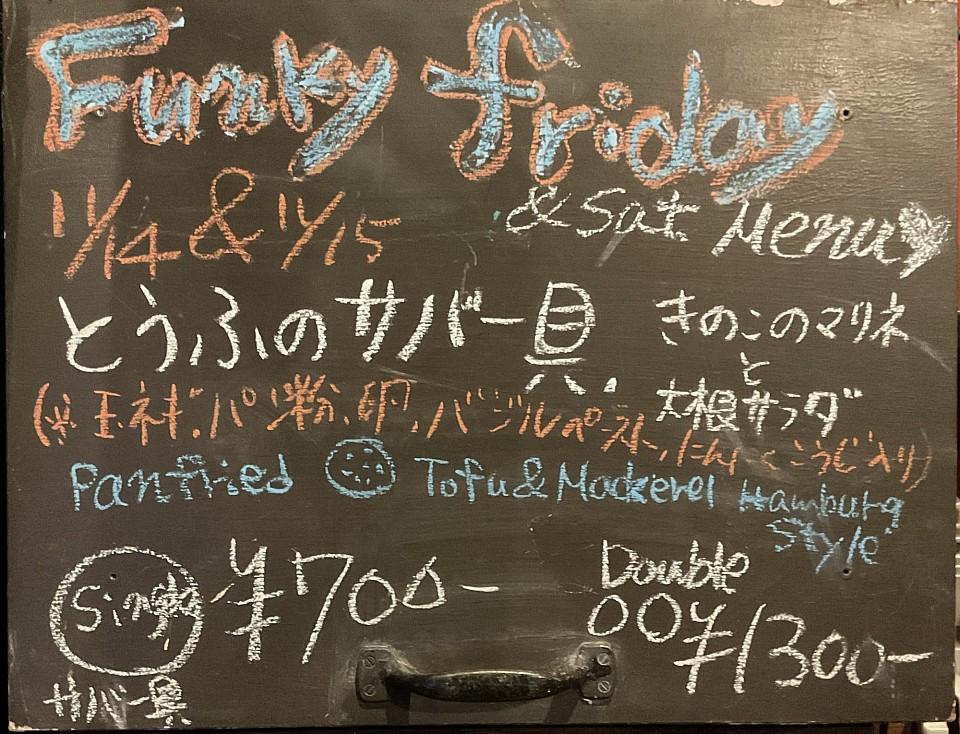 Funky friday
11/14 & 11/15
& Sat Menu
とうふのサバー具
きのこのマリネ
と
大根サラダ
(※玉ネギ、パン粉、卵、バジルペースト、にんにくこうじ入り)
Panfried Tofu & Mackerel Hamburg
Style
Single ¥700-
サバー具
Double
¥1300-